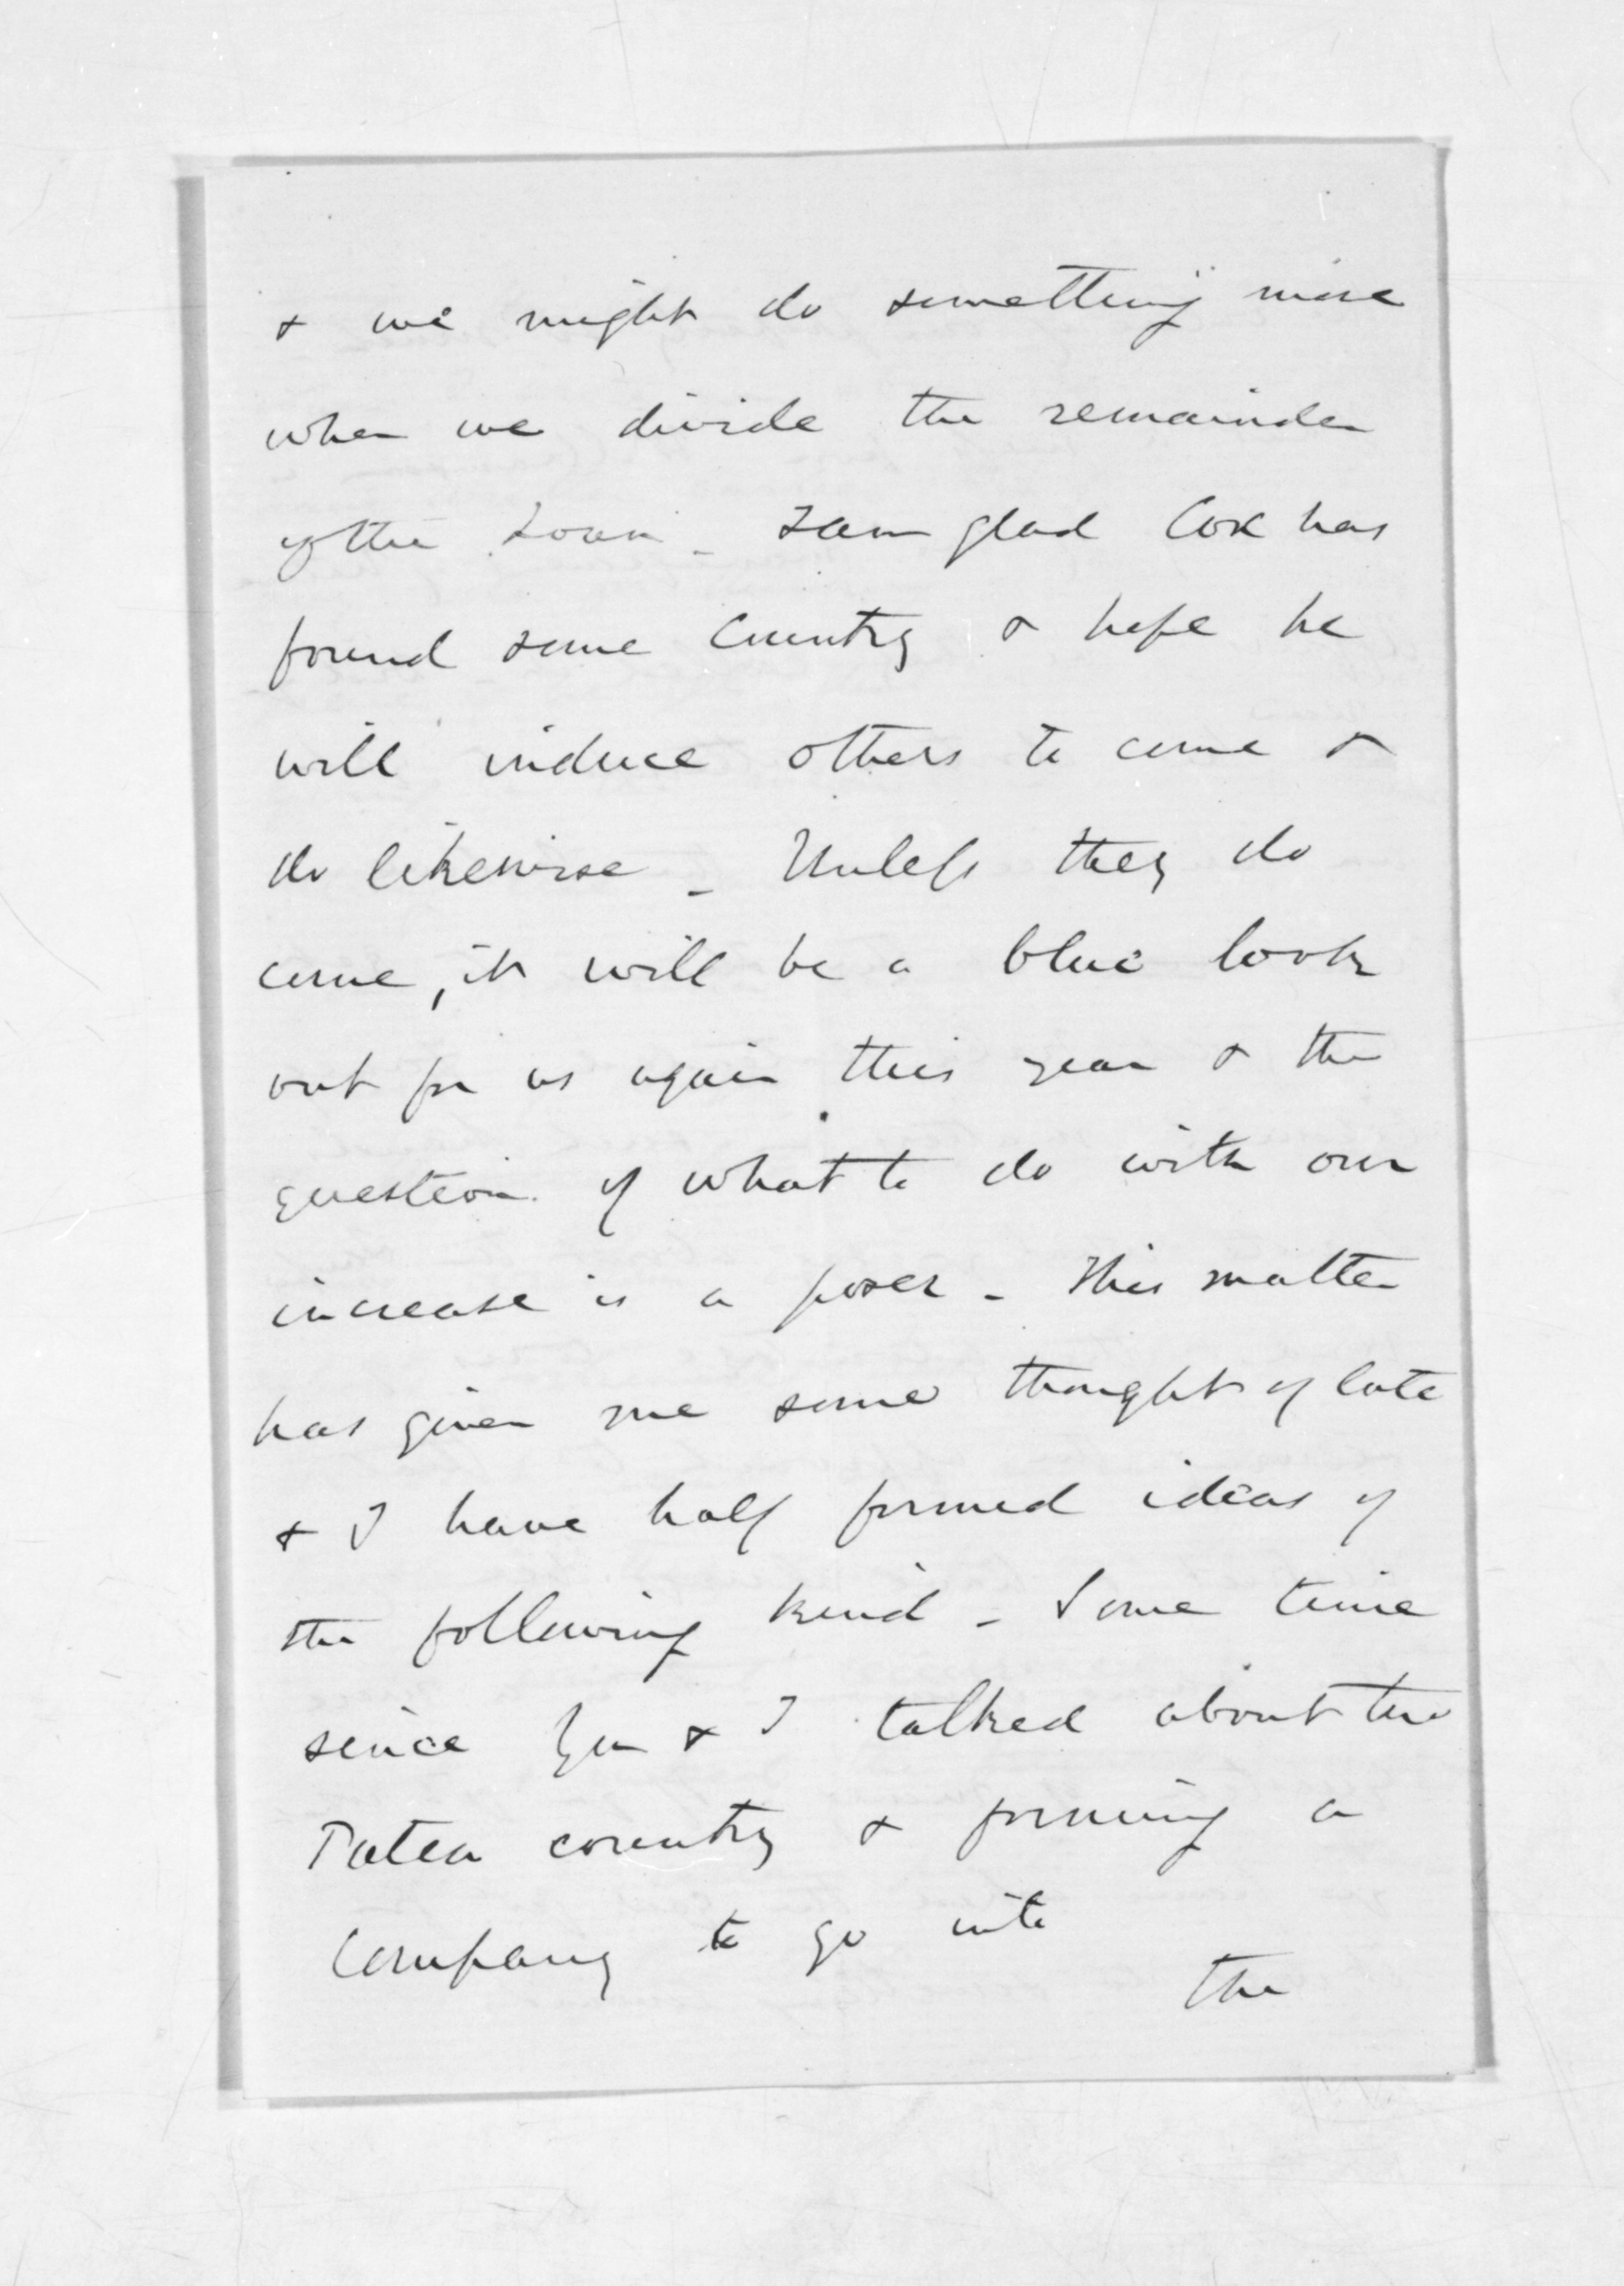 & we might do something more
when we divide the remainder
of the Loan - I am glad Cox has
found some Country & hope he
will induce others to come &
do likewise - Unless they do
come, it will be a blue look
out for us again this year & the
question of what to do with our
increase is a poser - This matter
has given me some thought of late
& I have half formed ideas of
the following kind - Some time
since you & I talked about the
Patea country & forming a
Company to go into
the